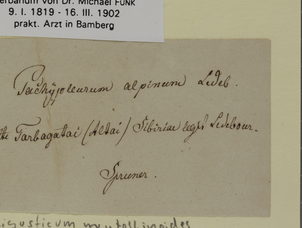 erbarium von Dr. Michael FUNK
9. I. 1819 - 16. III. 1902
prakt. Arzt in Bamberg
Pachypleurum alpinum Ledeb.
Tarbagatai (Altai) Sibiriae legit Ledebour.
Spruner.
Ligusticum mutellinoides